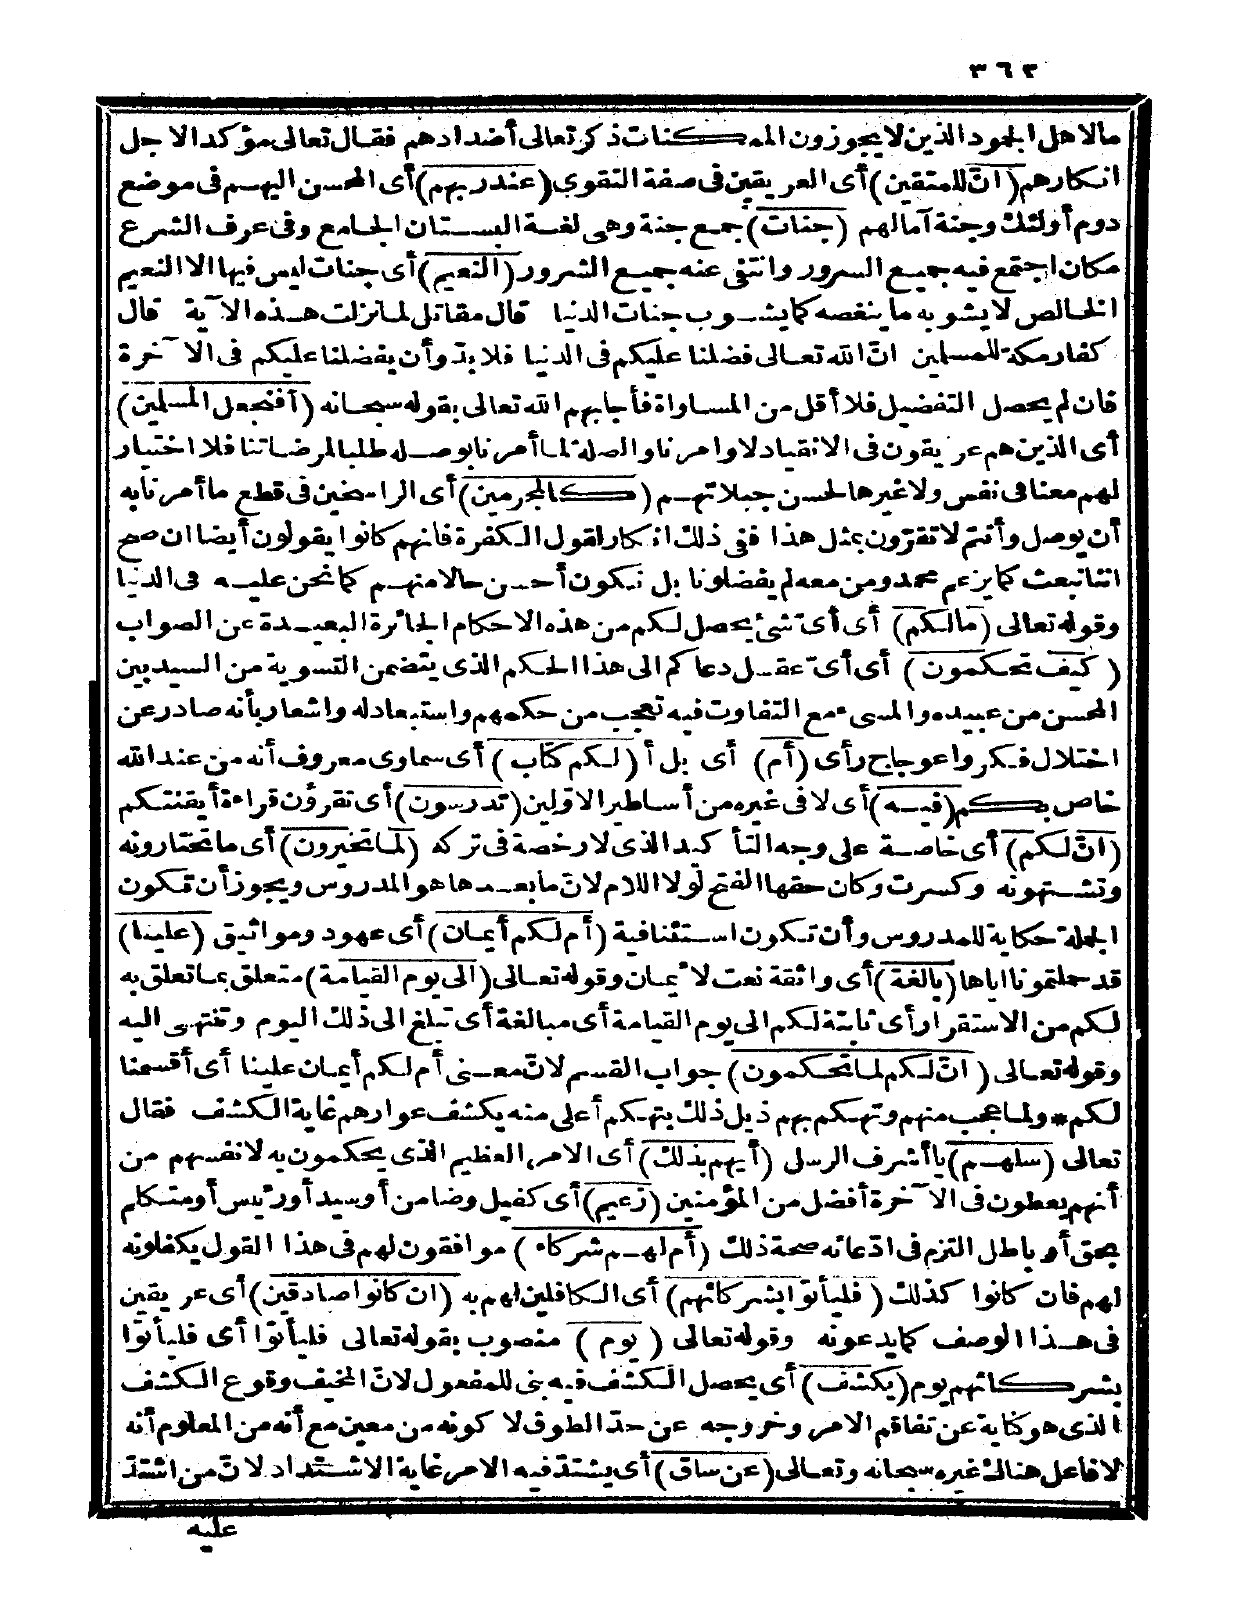 ٣٦٣
مالاهل الجمود الذين لا يجوزون الممكنات ذكر تعالى أضدادهم فقال تعالى مؤكدا لاجل
انكارهم (انّ للمتقين) أى العريقين فى صفة التقوى (عند ربهم) أى المحسن اليهم فى موضع
دوم أولئك وجنة آمالهم (جنات) جمع جنة وهى لغة البستان الجامع وفى عرف الشرع
مكان اجتمع فيه جميع السرور وانتفى عنه جميع الشرور (النعيم) أى جنات ليس فيها الا النعيم
الخالص لا يشوبه ما ينغصه كما يشوب جنات الدنيا قال مقاتل لما نزلت هذه الآية قال
كفار مكة للمسلمين انّ الله تعالى فضلنا عليكم فى الدنيا فلا بدّ وأن يفضلنا عليكم فى الآخرة
فان لم يحصل التفضيل فلا أقل من المساواة فأجابهم الله تعالى بقوله سبحانه (أفنجعل المسلمين)
أى الذين هم عريقون فى الانقياد لاوامرنا والصلة لما أمرنا بوصله طلبا لمرضاتنا فلا اختيار
لهم معنا فى نفس ولا غيرها لحسن جبلاتهم (كالمجرمين) أى الراسخين فى قطع ما أمرنا به
أن يوصل وأنتم لا تقرّون بمثل هذا ففى ذلك انكار لقول الكفرة فانهم كانوا يقولون أيضا ان صح
اننا نبعث كما يزعم محمد ومن معه لم يفضلونا بل نكون أحسن حالا منهم كما نحن عليه فى الدنيا
وقوله تعالى (مالكم) أى أىّ شئ يحصل لكم من هذه الاحكام الجائرة البعيدة عن الصواب
(كيف تحكمون) أى أىّ عقل دعاكم الى هذا الحكم الذى يتضمن التسوية من السيد بين
المحسن من عبيده والمسىء مع التفاوت فيه تعجب من حكمهم واستبعاد له واشعار بأنه صادر عن
اختلال فكر واعوجاج رأى (أم) أى بل أ (لكم كتاب) أى سماوى معروف أنه من عند الله
خاص بكم (فيه) أى لا فى غيره من أساطير الاوّلين (تدرسون) أى تقرؤن قراءة أيقنتكم
(انّ لكم) أى خاصة على وجه التأكيد الذى لا رخصة فى تركه (لما تخيرون) أى ما تختارونه
وتشتهونه وكسرت وكان حقها الفتح لولا اللام لانّ ما بعدها هو المدروس ويجوز أن تكون
الجملة حكاية للمدروس وأن تكون استئنافية (أم لكم أيمان) أى عهود ومواثيق (علينا)
قد حملتمونا اياها (بالغة) أى واثقة نعت لأيمان وقوله تعالى (الى يوم القيامة) متعلق بما تعلق به
لكم من الاستقرار أى ثابتة لكم الى يوم القيامة أى مبالغة أى تبلغ الى ذلك اليوم وتنتهى اليه
وقوله تعالى (انّ لكم لما تحكمون) جواب القسم لانّ معنى أم لكم أيمان علينا أى أقسمنا
لكم * ولما عجب منهم وتهكم بهم ذيل ذلك بتهكم أعلى منه يكشف عوارهم غاية الكشف فقال
تعالى (سلهم) يا أشرف الرسل (أيهم بذلك) أى الامر العظيم الذى يحكمون به لانفسهم من
أنهم يعطون فى الآخرة أفضل من المؤمنين (زعيم) أى كفيل وضامن أوسيد أورئيس أومتكلم
بحق أو باطل التزم فى ادّعائه صحة ذلك (أم لهم شركاء) موافقون لهم فى هذا القول يكفلونه
لهم فان كانوا كذلك (فليأتوا بشركائهم) أى الكافلين لهم به (ان كانوا صادقين) أى عريقين
فى هذا الوصف كما يدعونه وقوله تعالى (يوم) منصوب بقوله تعالى فليأتوا أى فليأتوا
بشركائهم يوم (يكشف) أى يحصل الكشف فيه بنى للمفعول لانّ المخيف وقوع الكشف
الذى هو كناية عن تفاقم الامر وخروجه عن حدّ الطوق لا كونه من معين مع أنه من المعلوم أنه
لا فاعل هنالك غيره سبحانه وتعالى (عن ساق) أى يشتدّ فيه الامر غاية الاشتداد لانّ من اشتدّ
عليه